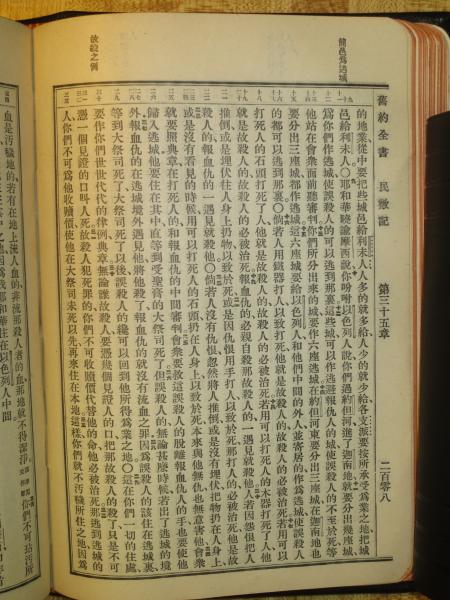 簡邑為逃城
舊約全書 民數記 第三十五章 二百零八
的地業從中要把些城邑給利未人人多的就多給人少的就少給各支派要按所承受為業之地把城
邑給利未人○耶和華曉諭摩西說你吩咐以色列人說你們過約但河進了迦南地就要分出幾座城
為你們作逃城使誤殺人的可以逃到那裏這些城可以作逃避報仇人的城使誤殺人的不至於死等
他站在會衆面前聽審判你們所分出來的城要作六座逃城在約但河東要分出三座城在迦南地也
要分出三座城都作逃城這六座城要給以色列人和他們中間的外人並寄居的作為逃城使誤殺人
的都可以逃到那裏○倘若人用鐵器打人以致打死他就是故殺人的故殺人的必被治死若用可以
打死人的石頭打死了人他就是故殺人的故殺人的必被治死若用可以打死人的木器打死了人他
就是故殺人的故殺人的必被治死報血仇的必親自殺那故殺人的一遇見就殺他人若因怨恨把人
推倒或是埋伏往人身上扔物以致於死或是因仇恨用手打人以致於死那打人的必被治死他是故
殺人的報血仇的一遇見就殺他○倘若人沒有仇恨忽然將人推倒或是沒有埋伏把物扔在人身上
或是沒有看見的時候用可以打死人的石頭扔在人身上以致於死本來與他無仇也無意害他會衆
就要照典章在打死人的和報血仇的中間審判會衆要救這誤殺人的脫離報血仇人的手也要使他
歸入逃城他要住在其中直等到受聖膏的大祭司死了但誤殺人的無論甚麼時候若出了逃城的境
外報血仇的在逃城境外遇見他將他殺了報血仇的就沒有流血之罪因為誤殺人的該住在逃城裏
等到大祭司死了大祭司死了以後誤殺人的纔可以回到他所得為業之地○這在你們一切的住處
要作你們世世代代的律例典章無論誰故殺人要憑幾個見證人的口把那故殺人的殺了只是不可
憑一個見證的口叫人死故殺人犯死罪的你們不可收贖價代替他的命他必被治死那逃到逃城的
人你們不可為他收贖價使他在大祭司未死以先再來住在本地這樣你們就不污穢所住之地因為
故殺之例
血是污穢地的若有在地上流人血的非流那殺人者的血那地就不得潔淨你們不可玷污所
住之地耶和華住在以色列人中間